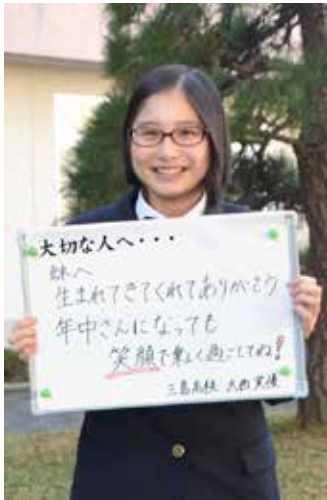 大切な人へ・・・
妹へ
生まれてきてくれてありがとう
年中さんになっても
笑顔で楽しく過ごしてね!
三島高校 大西